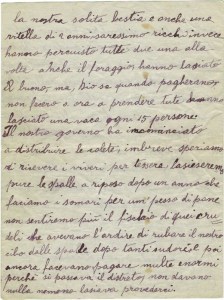 la nostra solita bestia e anche una
vitella di 2 anni saressimo ricchi invece
hanno percuisto tutte due una alla
volta anche il foraggio hanno lasciato
il buono, ma Dio sa quando pagheranno
non fecero e ora a prendere tute
lasiato una vaca ogni 15 persone
Il nostro governo ha incominciato
a distribuire le solete, imbreve speriamo
di ricevere i viveri per tessera, lasieseremo
pure le spalle a riposo dopo un anno che
faciamo i somari per un peso di pane
non sentiremo più il fischio di quei cru
deli che avevano l'ardire di rubare il nostro
cibo dalle spalle dopo tanti sudori e poi
ancora fecevano pagare multe enormi
perchè si passava il distretto, non davano
nulla nemeno lasiava provederci